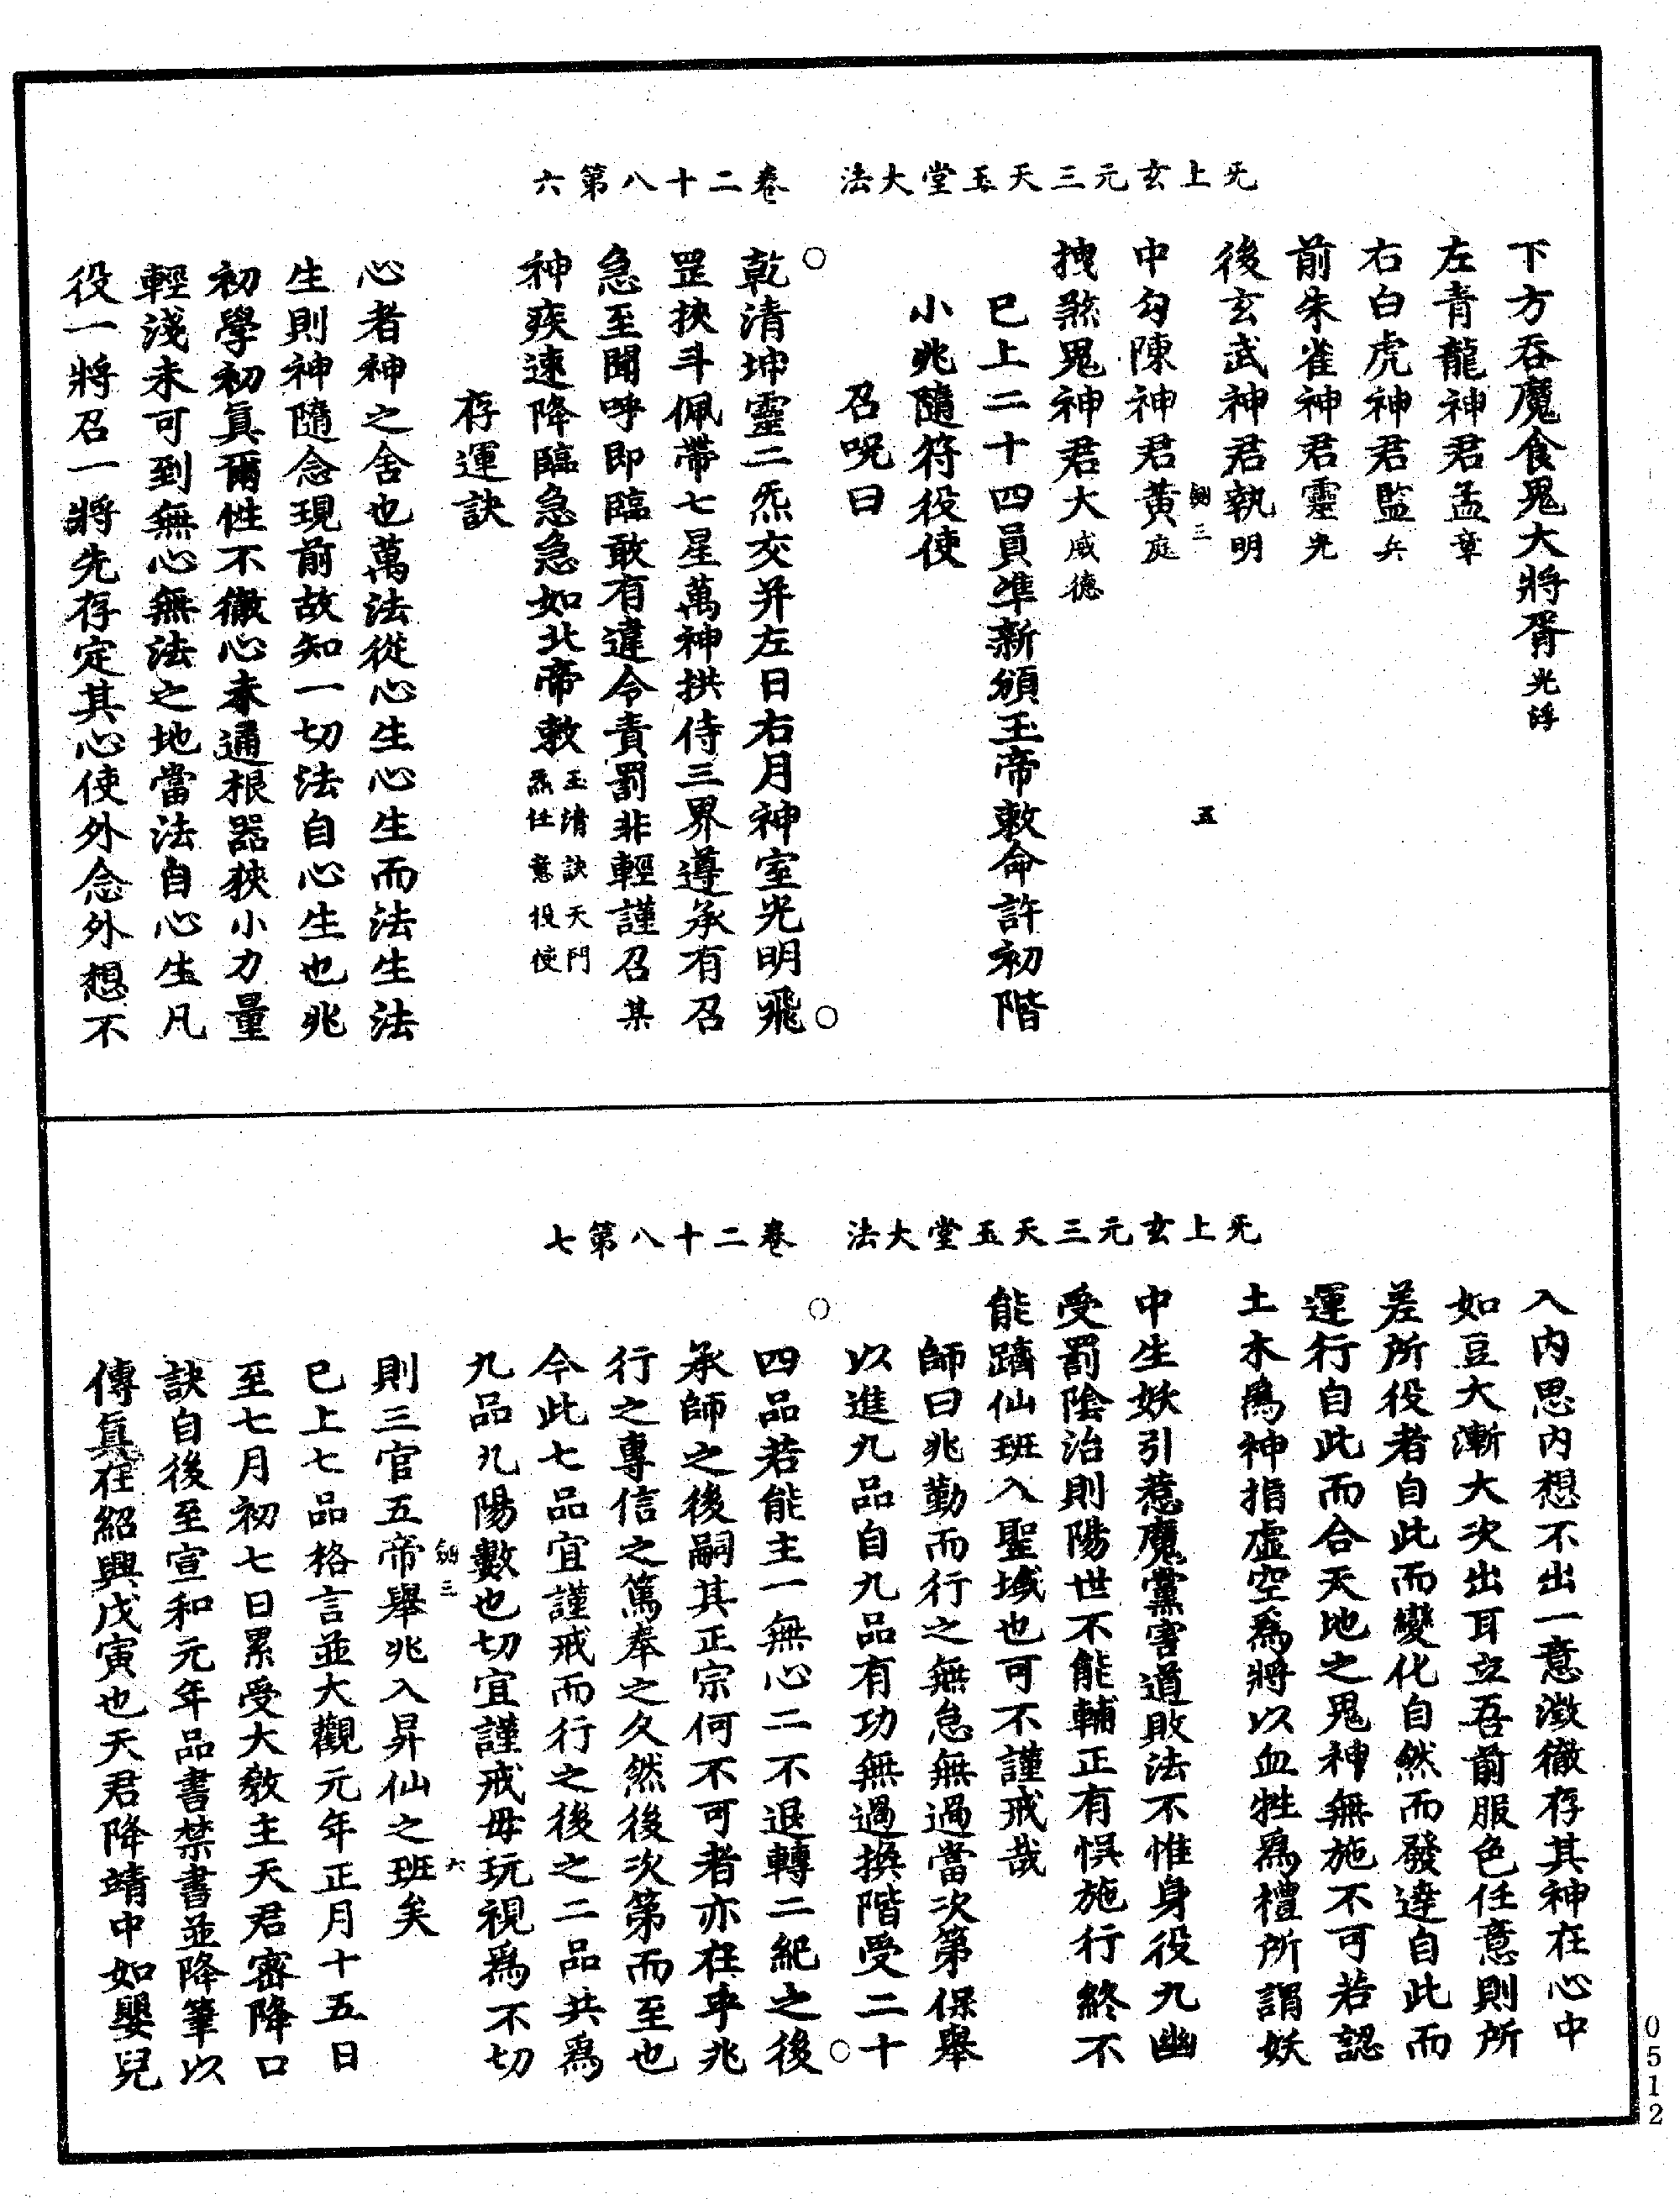 六第八十二卷　法大堂玉天三元玄上旡
下方吞魔食鬼大將胥光浮
左青龍神君孟章
右白虎神君監兵
前朱雀神君靈光
後玄武神君執明
三　五
中勾陳神君黃庭
拽煞鬼神君大威德
巳上二十四員準新頒玉帝敕命許初階
小兆隨符役使
召呪曰
○乾清坤靈二炁交并左日右月神室光明飛○
罡挾斗佩帶七星萬神拱侍三界遵承有召
急至聞呼即臨敢有違令責罰非輕謹召某
神疾速降臨急急如北帝敕玉清訣天門
炁任意役使
存運訣
心者神之舍也萬法從心生心生而法生法
生則神隨念現前故知一切法自心生也兆
初學初真爾性不徹心未通根器狹小力量
輕淺未可到無心無法之地當法自心生凡
役一將召一將先存定其心使外念外想不
七第八十二卷　法大堂玉天三元玄上旡
入內思內想不出一意澂徹存其神在心中
如豆大漸大次出耳立吾前服色任意則所
差所役者自此而變化自然而發達自此而
運行自此而合天地之鬼神無施不可若認
土木爲神指虛空爲將以血牲爲禮所謂妖
中生妖引惹魔黨害道敗法不惟身役九幽
受罰陰治則陽世不能輔正有悞施行終不
能躋仙班入聖域也可不謹戒哉
師曰兆勤而行之無怠無過當次第保舉
以進九品自九品有功無過換階受二十
○四品若能主一無心二不退轉二紀之後○
承師之後嗣其正宗何不可者亦在乎兆
行之專信之篤奉之久然後次第而至也
今此七品宜謹戒而行之後之二品共爲
九品九陽數也切宜謹戒毋玩視爲不切
三　六
則三官五帝舉兆入昇仙之班矣
巳上七品格言並大觀元年正月十五日
至七月初七日累受大教主天君密降口
訣自後至宣和元年品書禁書並降筆以
傳真在紹興戊寅也天君降靖中如嬰兒
0512